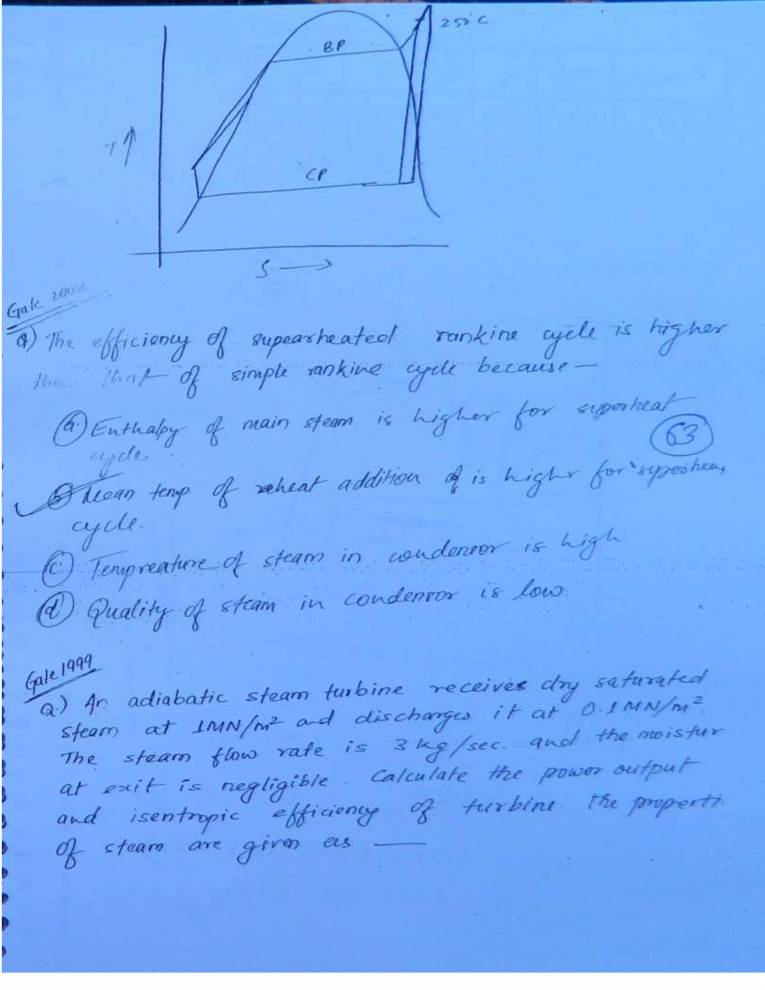 250°C
BP
T↑
CP
S →
Gate 2002
Q) The efficiency of supearheated rankine cycle is higher
of simple rankine cycle because —
(a.) Enthalpy of main steam is higher for superheat
cycle.
63
✓ (b) Mean temp of reheat addition of is highr for superheat
cycle.
(c.) Tempreature of steam in condensor is high
(d) Quality of steam in condensor is low.
Gate 1999
Q.) An adiabatic steam turbine receives dry saturated
steam at 1MN/m² and discharges it at 0.1MN/m².
The steam flow rate is 3 kg/sec. and the moistur
at exit is negligible. Calculate the power output
and isentropic efficiency of turbine. the properti
of steam are given as —